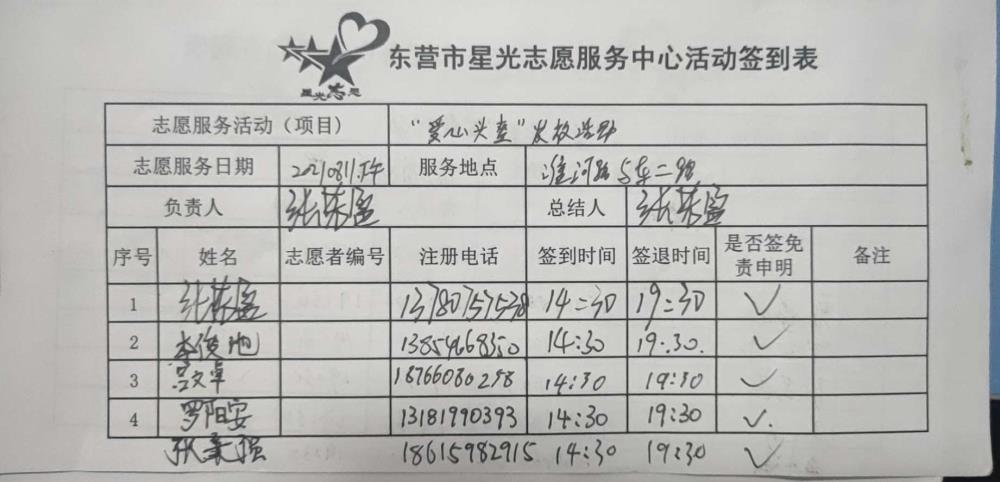 星光志愿
东营市星光志愿服务中心活动签到表
志愿服务活动（项目） “爱心头盔”发放活动
志愿服务日期 20210811下午 服务地点 淮河路与东二路
负责人 张荣盈 总结人 张荣盈
序号 姓名 志愿者编号 注册电话 签到时间 签退时间 是否签免责申明 备注
1 张荣盈 13780757538 14:30 19:30 ✓
2 李俊 13854668350 14:30 19:30 ✓
3 吕文卓 18766080298 14:30 19:30 ✓
4 罗阳安 13181990393 14:30 19:30 ✓
张 强 18615982915 14:30 19:30 ✓